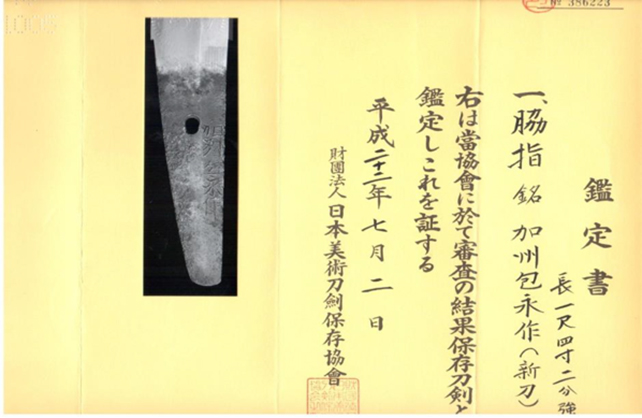 No 386223
鑑定書
一、脇指 銘 加州包永作(新刀)
長一尺四寸二分強
右は當協會に於て審査の結果保存刀剣と
鑑定しこれを証する
平成二十二年七月二日
財團法人 日本美術刀剣保存協會